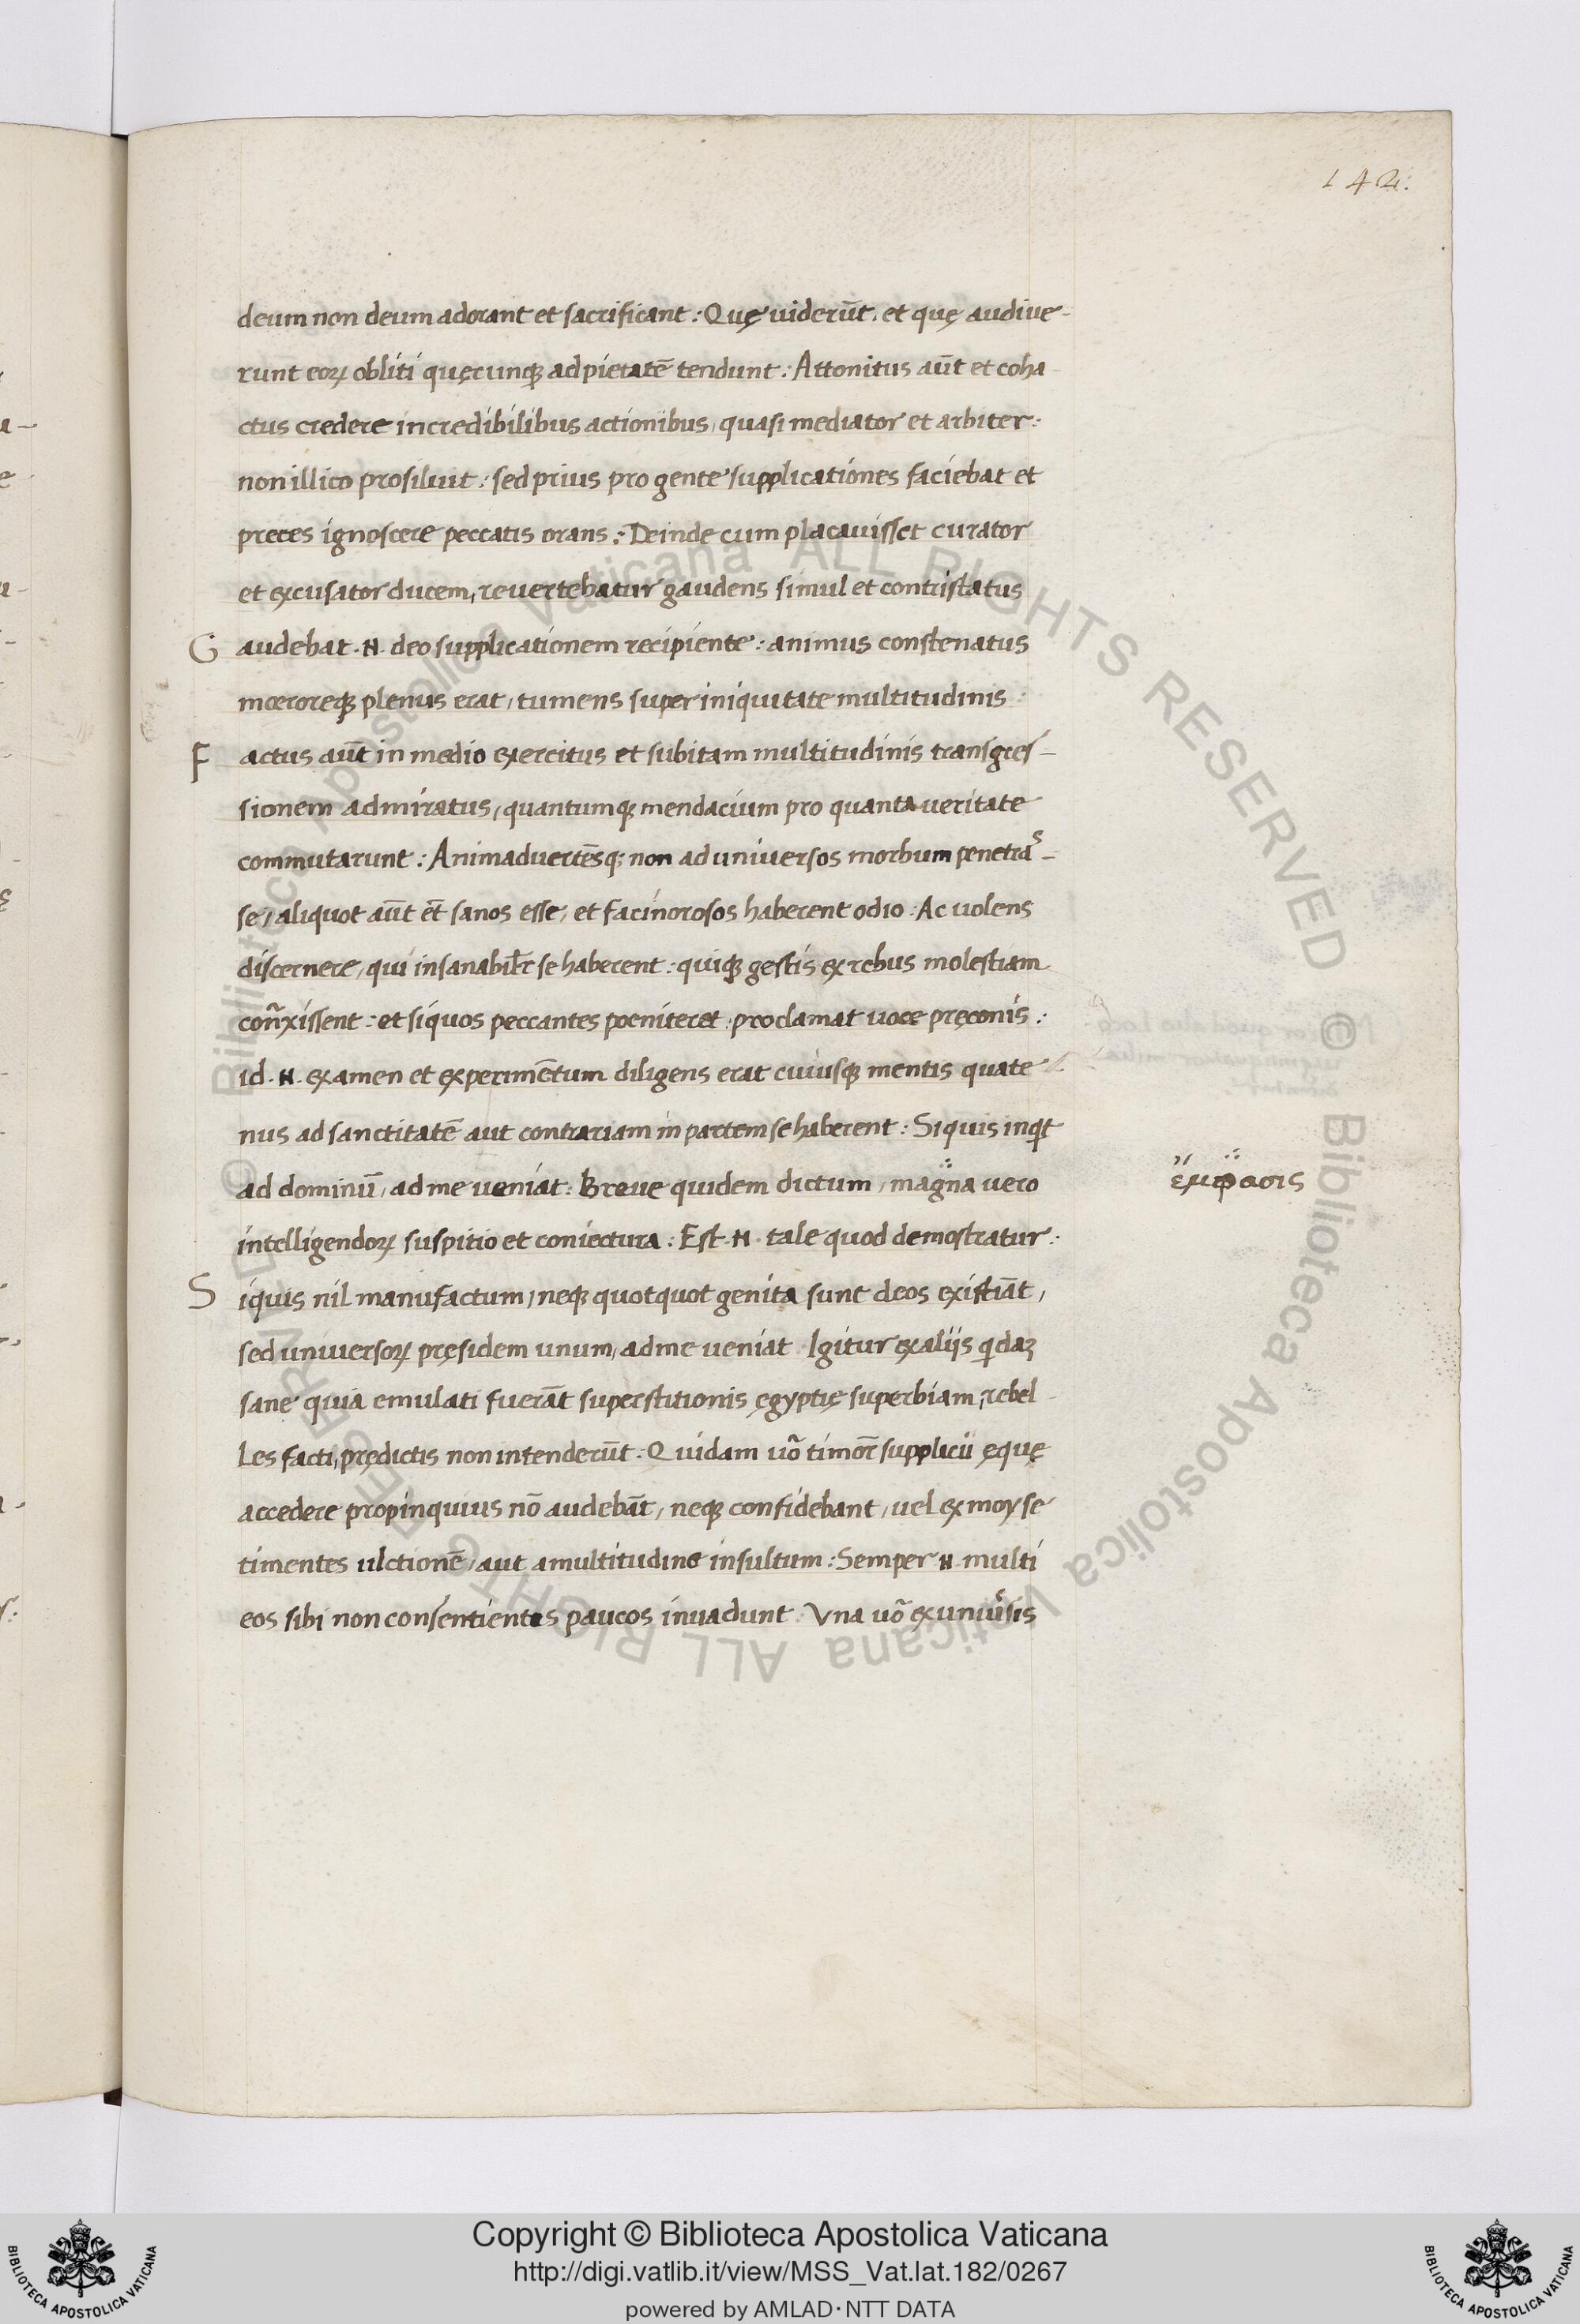 142.
deum non deum adorant et sacrificant : Quę uiderūt . et quę audiue-
runt eoꝝ obliti quęcunqꝫ ad pietatē tendunt : Attonitus aūt et coha-
ctus credere incredibilibus actionibus , quasi mediator et arbiter :
non illico prosiluit : sed prius pro gente supplicationes faciebat et
preces ignoscere peccatis orans : Deinde cum placauisset curator
et excusator ducem , reuertebatur gaudens simul et contristatus
G audebat . N . deo supplicationem recipiente : animus constenatus
moeroreqꝫ plenus erat , tumens super iniquitate multitudinis :
F actus aūt in medio exercitus et subitam multitudinis transgres-
sionem admiratus , quantumqꝫ mendacium pro quanta ueritate
commutarunt : Animaduertēsqꝫ non ad uniuersos morbum penetras-
se , aliquot aūt et̄ sanos esse , et facinorosos haberent odio : Ac uolens
discernere , qui insanabilr̄ se haberent : quiqꝫ gestis ex rebus molestiam
con̄xissent : et siquos peccantes poeniteret . proclamat uoce pręconis :
id . N . examen et experimētum diligens erat cuiusqꝫ mentis quate-
nus ad sanctitatē aut contrariam in partem se haberent : Siquis inqt
ad dominū , ad me ueniat : Breue quidem dictum , magna uero
ἔμφασις
intelligendoꝝ suspitio et coniectura : Est . N . tale quod demostratur :
S iquis nil manufactum , neqꝫ quotquot genita sunt deos existiāt ,
sed uniuersoꝝ pręsidem unum , ad me ueniat . Igitur ex aliis qdaꝫ
sane quia emulati fuerāt superstitionis ęgyptię superbiam , rebel-
les facti , prędictis non intenderūt : Quidam uō timor̄ supplicii ęquę
accedere propinquius nō audebāt , neqꝫ confidebant , uel ex moyse
timentes ulctionē , aut a multitudine insultum : Semper . N . multi
eos sibi non consentientes paucos inuadunt . Vna uō ex uniūsis
Copyright © Biblioteca Apostolica Vaticana
http://digi.vatlib.it/view/MSS_Vat.lat.182/0267
powered by AMLAD · NTT DATA